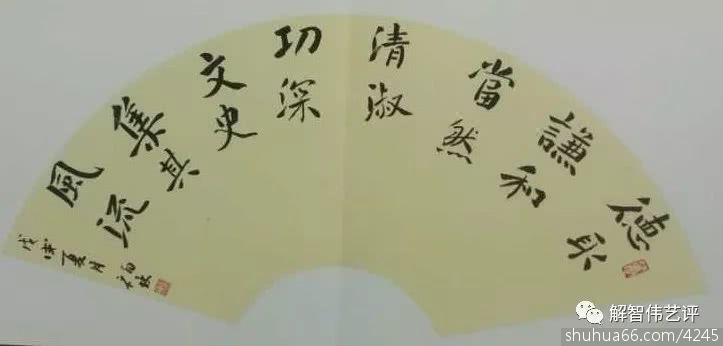 德取
謙和
當然
清淑
功深
文史
集其
風流
戊 夏月
解智伟艺评
shuhua66.com/4245